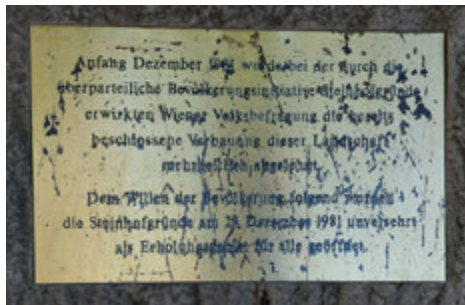 Anfang Dezember 1981 wurde bei der durch die
überparteiliche Bevölkerungsinitiative Steinhofgründe
erwirkten Wiener Volksbefragung die bereits
beschlossene Verbauung dieser Landschaft
mehrheitlich abgelehnt.
Dem Willen der Bevölkerung folgend wurden
die Steinhofgründe am 28. Dezember 1981 unversehrt
als Erholungsgebiet für alle geöffnet.